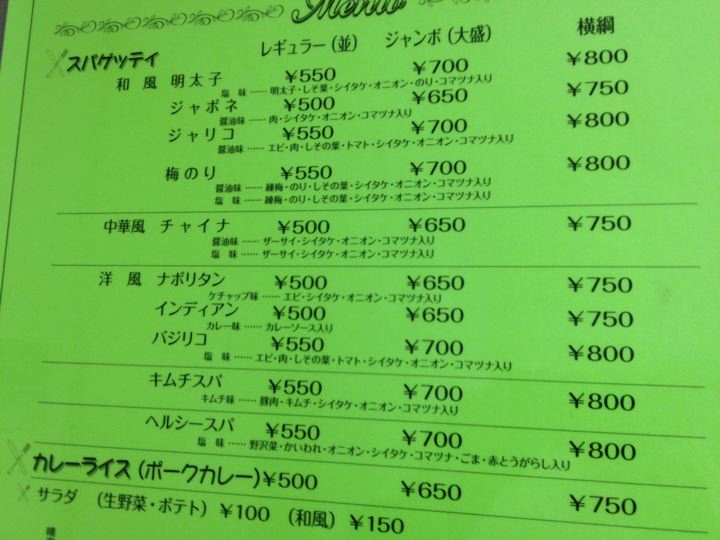 Menu
レギュラー(並) ジャンボ(大盛) 横綱
スパゲッティ
和風 明太子 ¥550 ¥700 ¥800
塩味 …… 明太子・しそ葉・シイタケ・オニオン・のり・コマツナ入り
ジャポネ ¥500 ¥650 ¥750
醤油味 …… 肉・シイタケ・オニオン・コマツナ入り
ジャリコ ¥550 ¥700 ¥800
醤油味 …… エビ・肉・しその葉・トマト・シイタケ・オニオン・コマツナ入り
梅のり ¥550 ¥700 ¥800
醤油味 …… 練梅・のり・しその葉・シイタケ・オニオン・コマツナ入り
塩 味 …… 練梅・のり・しその葉・シイタケ・オニオン・コマツナ入り
中華風 チャイナ ¥500 ¥650 ¥750
醤油味 …… ザーサイ・シイタケ・オニオン・コマツナ入り
塩 味 …… ザーサイ・シイタケ・オニオン・コマツナ入り
洋風 ナポリタン ¥500 ¥650 ¥750
ケチャップ味 …… エビ・シイタケ・オニオン・コマツナ入り
インディアン ¥500 ¥650 ¥750
カレー味 …… カレーソース入り
バジリコ ¥550 ¥700 ¥800
塩味 …… エビ・肉・しその葉・トマト・シイタケ・オニオン・コマツナ入り
キムチスパ ¥550 ¥700 ¥800
キムチ味 …… 豚肉・キムチ・シイタケ・オニオン・コマツナ入り
ヘルシースパ ¥550 ¥700 ¥800
塩味 …… 野沢菜・かいわれ・オニオン・シイタケ・コマツナ・ごま・赤とうがらし入り
カレーライス(ポークカレー) ¥500 ¥650 ¥750
サラダ (生野菜・ポテト) ¥100 (和風) ¥150